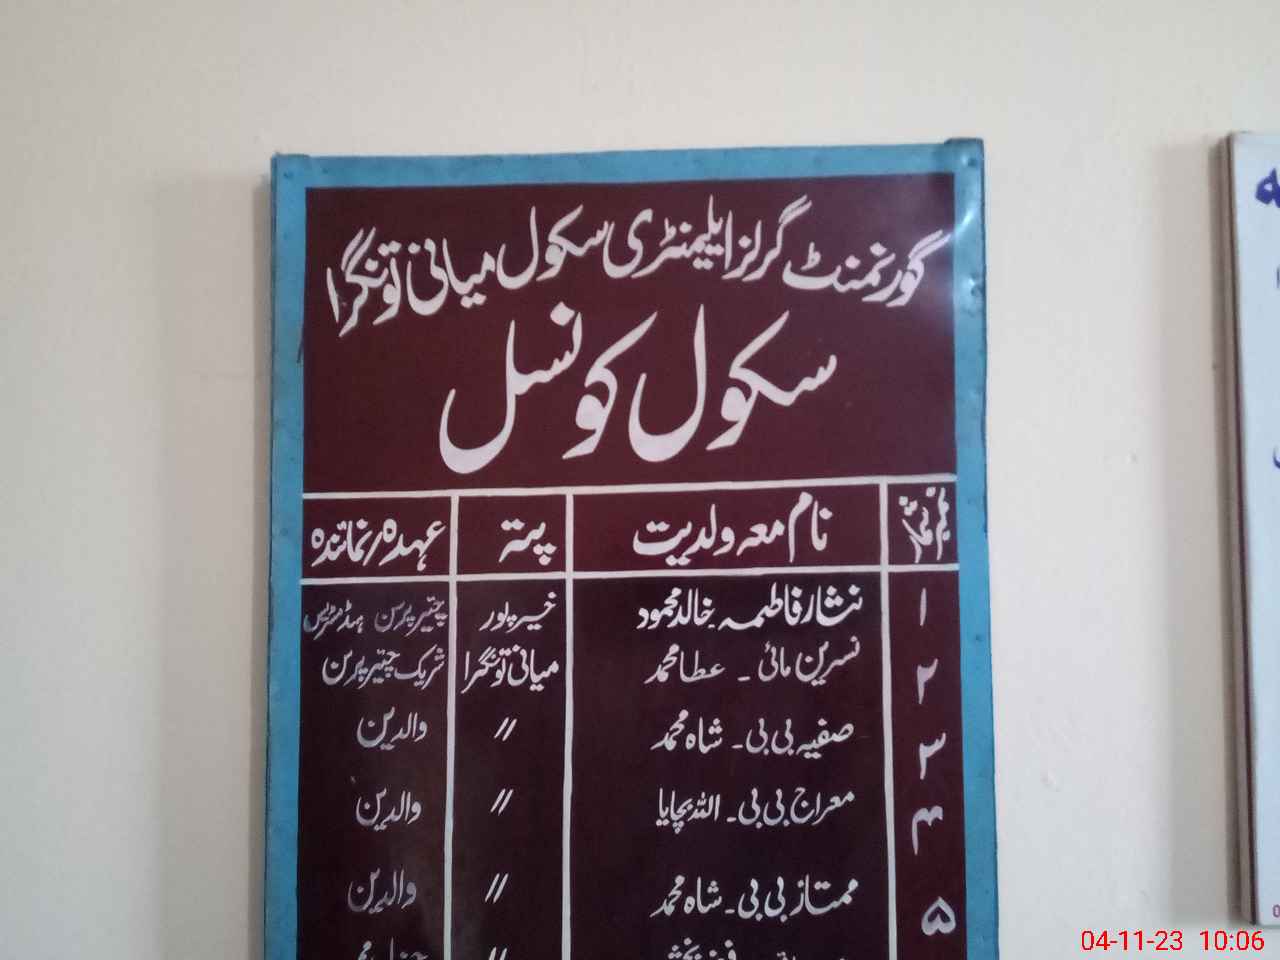 گورنمنٹ گرلز ایلیمنٹری سکول میانی تونگرا
سکول کونسل
نمبر شمار نام معہ ولدیت پتہ عہدہ/نمائندہ
۱ نثار فاطمہ خالد محمود خیرپور چئیر پرسن ہیڈ مسٹریس
۲ نسرین مائی ۔ عطا محمد میانی تونگرا شریک چئیر پرسن
۳ صفیہ بی بی ۔ شاہ محمد // والدین
۴ معراج بی بی ۔ اللہ بچایا // والدین
۵ ممتاز بی بی ۔ شاہ محمد // والدین
04-11-23 10:06